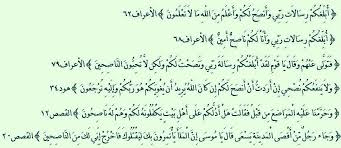 ﴿ أُبَلِّغُكُمْ رِسَالَاتِ رَبِّي وَأَنصَحُ لَكُمْ وَأَعْلَمُ مِنَ اللَّهِ مَا لَا تَعْلَمُونَ ﴾ الأعراف٦٢
﴿ أُبَلِّغُكُمْ رِسَالَاتِ رَبِّي وَأَنَا لَكُمْ نَاصِحٌ أَمِينٌ ﴾ الأعراف٦٨
﴿ فَتَوَلَّى عَنْهُمْ وَقَالَ يَا قَوْمِ لَقَدْ أَبْلَغْتُكُمْ رِسَالَةَ رَبِّي وَنَصَحْتُ لَكُمْ وَلَكِن لَّا تُحِبُّونَ النَّاصِحِينَ ﴾ الأعراف٧٩
﴿ وَلَا يَنفَعُكُمْ نُصْحِي إِنْ أَرَدتُّ أَنْ أَنصَحَ لَكُمْ إِن كَانَ اللَّهُ يُرِيدُ أَن يُغْوِيَكُمْ هُوَ رَبُّكُمْ وَإِلَيْهِ تُرْجَعُونَ ﴾ هود٣٤
﴿ وَحَرَّمْنَا عَلَيْهِ الْمَرَاضِعَ مِن قَبْلُ فَقَالَتْ هَلْ أَدُلُّكُمْ عَلَى أَهْلِ بَيْتٍ يَكْفُلُونَهُ لَكُمْ وَهُمْ لَهُ نَاصِحُونَ ﴾ القصص١٢
﴿ وَجَاء رَجُلٌ مِّنْ أَقْصَى الْمَدِينَةِ يَسْعَى قَالَ يَا مُوسَى إِنَّ الْمَلَأَ يَأْتَمِرُونَ بِكَ لِيَقْتُلُوكَ فَاخْرُجْ إِنِّي لَكَ مِنَ النَّاصِحِينَ ﴾ القصص٢٠